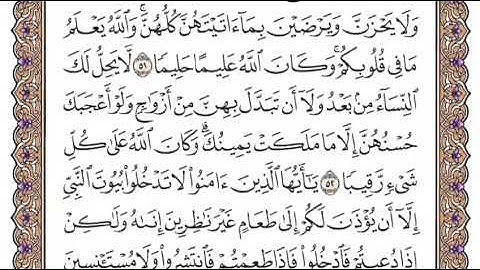 وَلَا يَحْزَنَّ وَيَرْضَيْنَ بِمَآ ءَاتَيْتَهُنَّ كُلُّهُنَّ ۚ وَٱللَّهُ يَعْلَمُ
مَا فِى قُلُوبِكُمْ ۚ وَكَانَ ٱللَّهُ عَلِيمًا حَلِيمًا ٥١ لَّا يَحِلُّ لَكَ
ٱلنِّسَآءُ مِنۢ بَعْدُ وَلَآ أَن تَبَدَّلَ بِهِنَّ مِنْ أَزْوَٰجٍ وَلَوْ أَعْجَبَكَ
حُسْنُهُنَّ إِلَّا مَا مَلَكَتْ يَمِينُكَ ۗ وَكَانَ ٱللَّهُ عَلَىٰ كُلِّ
شَىْءٍ رَّقِيبًا ٥٢ يَٰٓأَيُّهَا ٱلَّذِينَ ءَامَنُوا۟ لَا تَدْخُلُوا۟ بُيُوتَ ٱلنَّبِىِّ
إِلَّآ أَن يُؤْذَنَ لَكُمْ إِلَىٰ طَعَامٍ غَيْرَ نَٰظِرِينَ إِنَىٰهُ وَلَٰكِنْ
إِذَا دُعِيتُمْ فَٱدْخُلُوا۟ فَإِذَا طَعِمْتُمْ فَٱنتَشِرُوا۟ وَلَا مُسْتَـْٔنِسِينَ